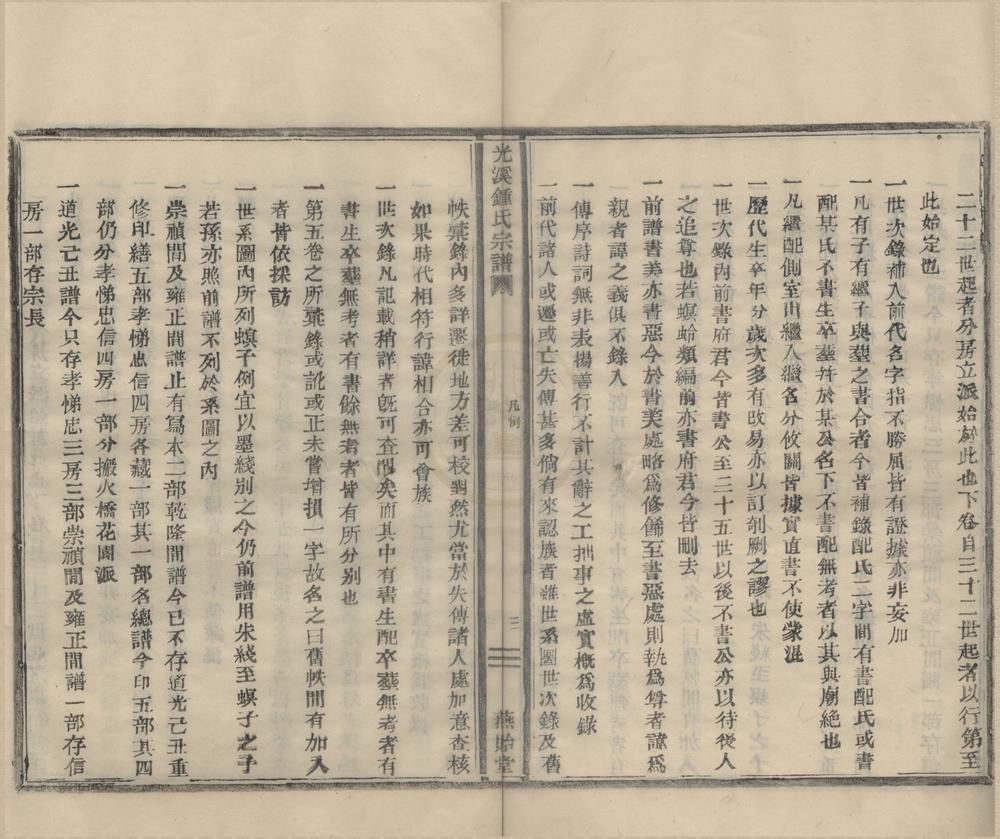 二十二世起者分房立派始於此也下卷自三十二世起者以行第至
此始定也
一世次錄補入前代名字指不勝屈皆有證據亦非妄加
一凡有子有繼子與娶之書合者今皆補錄配氏二字間有書配氏或書
配某氏不書生卒塟并於某公名下不書配無考者以其與廟絶也
一凡繼配側室出繼入繼名分攸關皆據實直書不使蒙混
一歷代生卒年分歲次多有改易亦以訂剞劂之謬也
一世次錄內前書府君今皆書公至三十五世以後不書公亦以待後人
之追尊也若螟蛉類編前亦書府君今皆刪去
一前譜書美亦書惡今於書美處略為修餙至書惡處則執為尊者諱為
親者諱之義俱不錄入
一傳序詩詞無非表揚善行不計其辭之工拙事之虛實概為收錄
一前代諸人或遷或亡失傳甚多倘有來認族者雖世系圖世次錄及舊
光溪鍾氏宗譜
凡例
三
燕貽堂
帙彙錄內多詳遷徙地方差可校對然尤當於失傳諸人處加意查核
如果時代相符行諱相合亦可會族
一世次錄凡記載稍詳者旣可查閱矣而其中有書生配卒塟無考者有
書生卒塟無考者有書餘無考者皆有所分別也
一第五卷之所彙錄或訛或正未嘗增損一字故名之曰舊帙間有加入
者皆依採訪
一世系圖內所列螟子例宜以墨綫別之今仍前譜用朱綫至螟子之子
若孫亦照前譜不列於系圖之內
一崇禎間及雍正間譜止有寫本二部乾隆間譜今已不存道光己丑重
修印繕五部孝悌忠信四房各藏一部其一部名總譜今印五部其四
部仍分孝悌忠信四房一部分搬火橋花園派
一道光己丑譜今只存孝悌忠三房三部崇禎間及雍正間譜一部存信
房一部存宗長